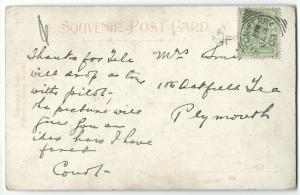 SOUVENIR POST CARD
Thanks for Tele
will drop a line
with pilot.
the picture will
give you an
idea how I have
fared
Mrs
106 Oatfield Tce
Plymouth